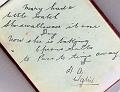 Mary had a
little watch
She swallowed it one
Day
Now she is taking
Epsom Salts
to Pass the time away